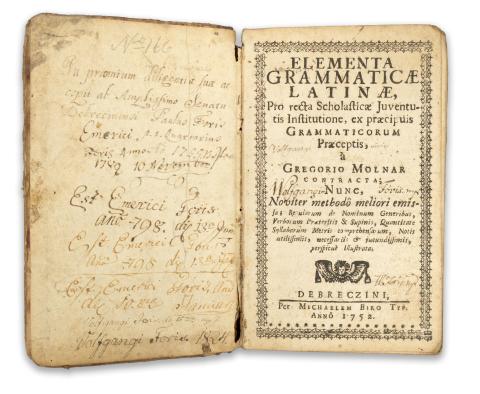 Nro 166
In præmium diligentiæ suæ ac
cepit ab Amplissimo Senatu
Debreczinensi Paulus Foris
Emerici,
1759 10 Novembr
Est Emerici Foris
ano 798. die 13
Est Emerici Foris
ano 798 die 13
Est Emerici Foris
die 10
Wolfgangi Foris
Wolfgangi Foris 1824.
ELEMENTA
GRAMMATICÆ
LATINÆ,
Pro recta Scholasticæ Juventu-
tis Institutione, ex præcipuis
GRAMMATICORUM
Præceptis,
à
GREGORIO MOLNAR
CONTRACTA;
Wolfgangi Foris
NUNC,
Noviter methodô meliori emis-
sa; Regularum de Nominum Generibus,
Verborum Præteritis & Supinis, Quantitate
Syllabarum Metris comprehensarum, Notis
utilissimis, necessariis & jucundissimis,
perspicuè illustrata.
DEBRECZINI,
Per MICHAELEM BIRO Typ.
ANNÔ 1752.